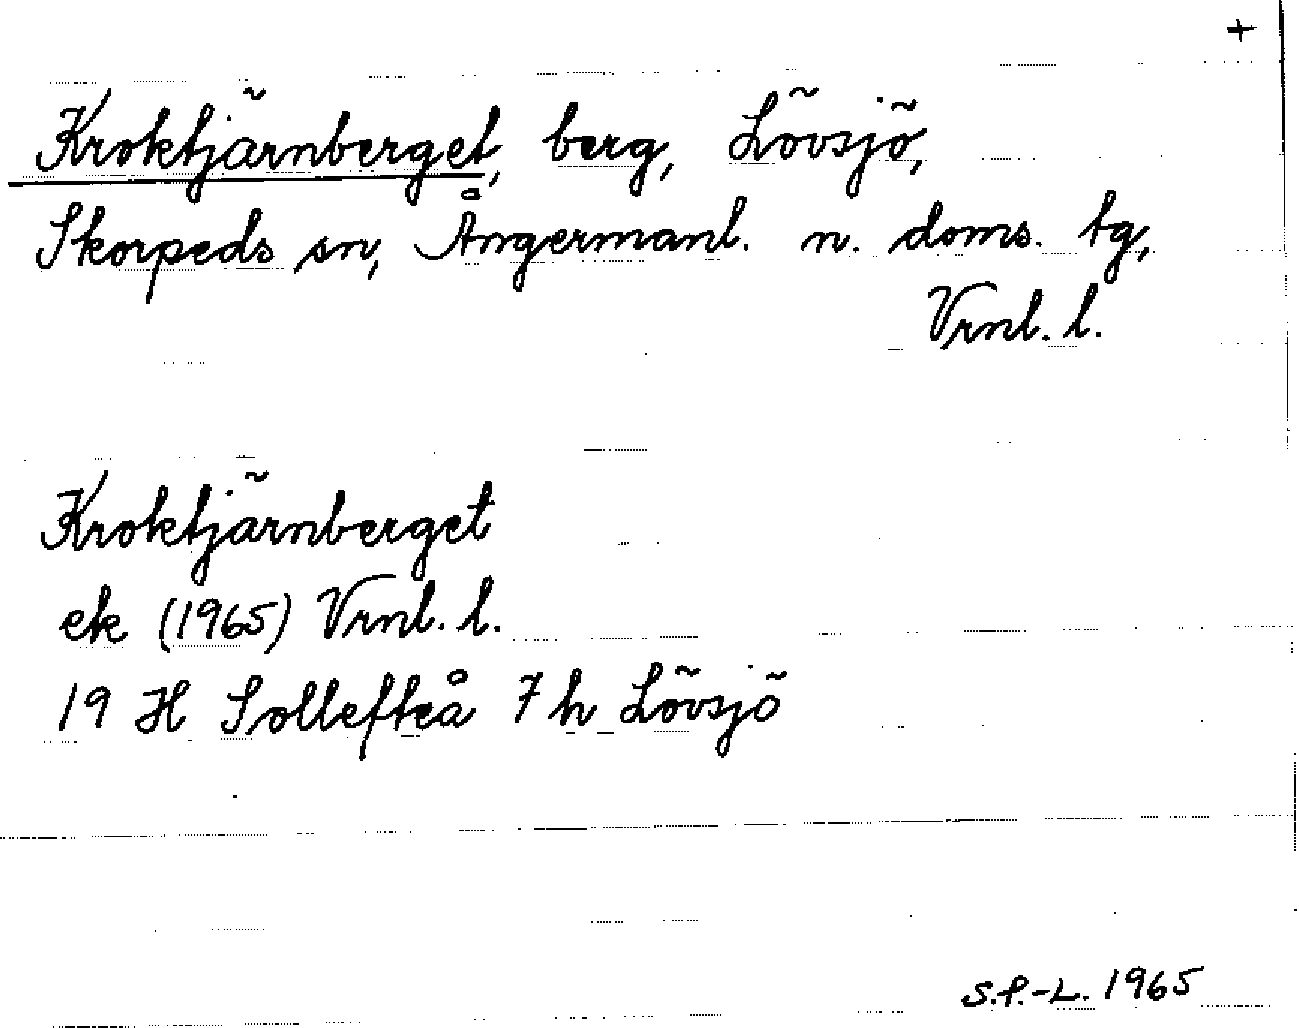 +
Kroktjärnberget, berg, Lövsjö,
Skorpeds sn, Ångermanl. n. doms. tg,
Vrnl. l.
Kroktjärnberget
ek (1965) Vrnl. l.
19 H Sollefteå 7h Lövsjö
S.P.-L. 1965